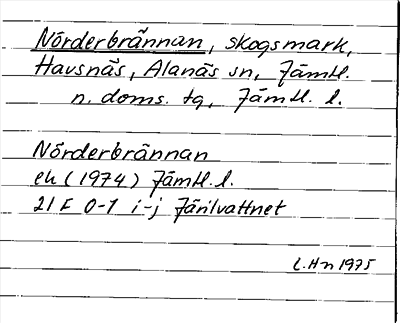 Nörderbrännan, skogsmark,
Havsnäs, Alanäs sn, Jämtl.
n. doms. tg, Jämtl. l.
Nörderbrännan
ek (1974) Jämtl. l.
21 F 0-1 i-j Järilvattnet
L. Hn 1975